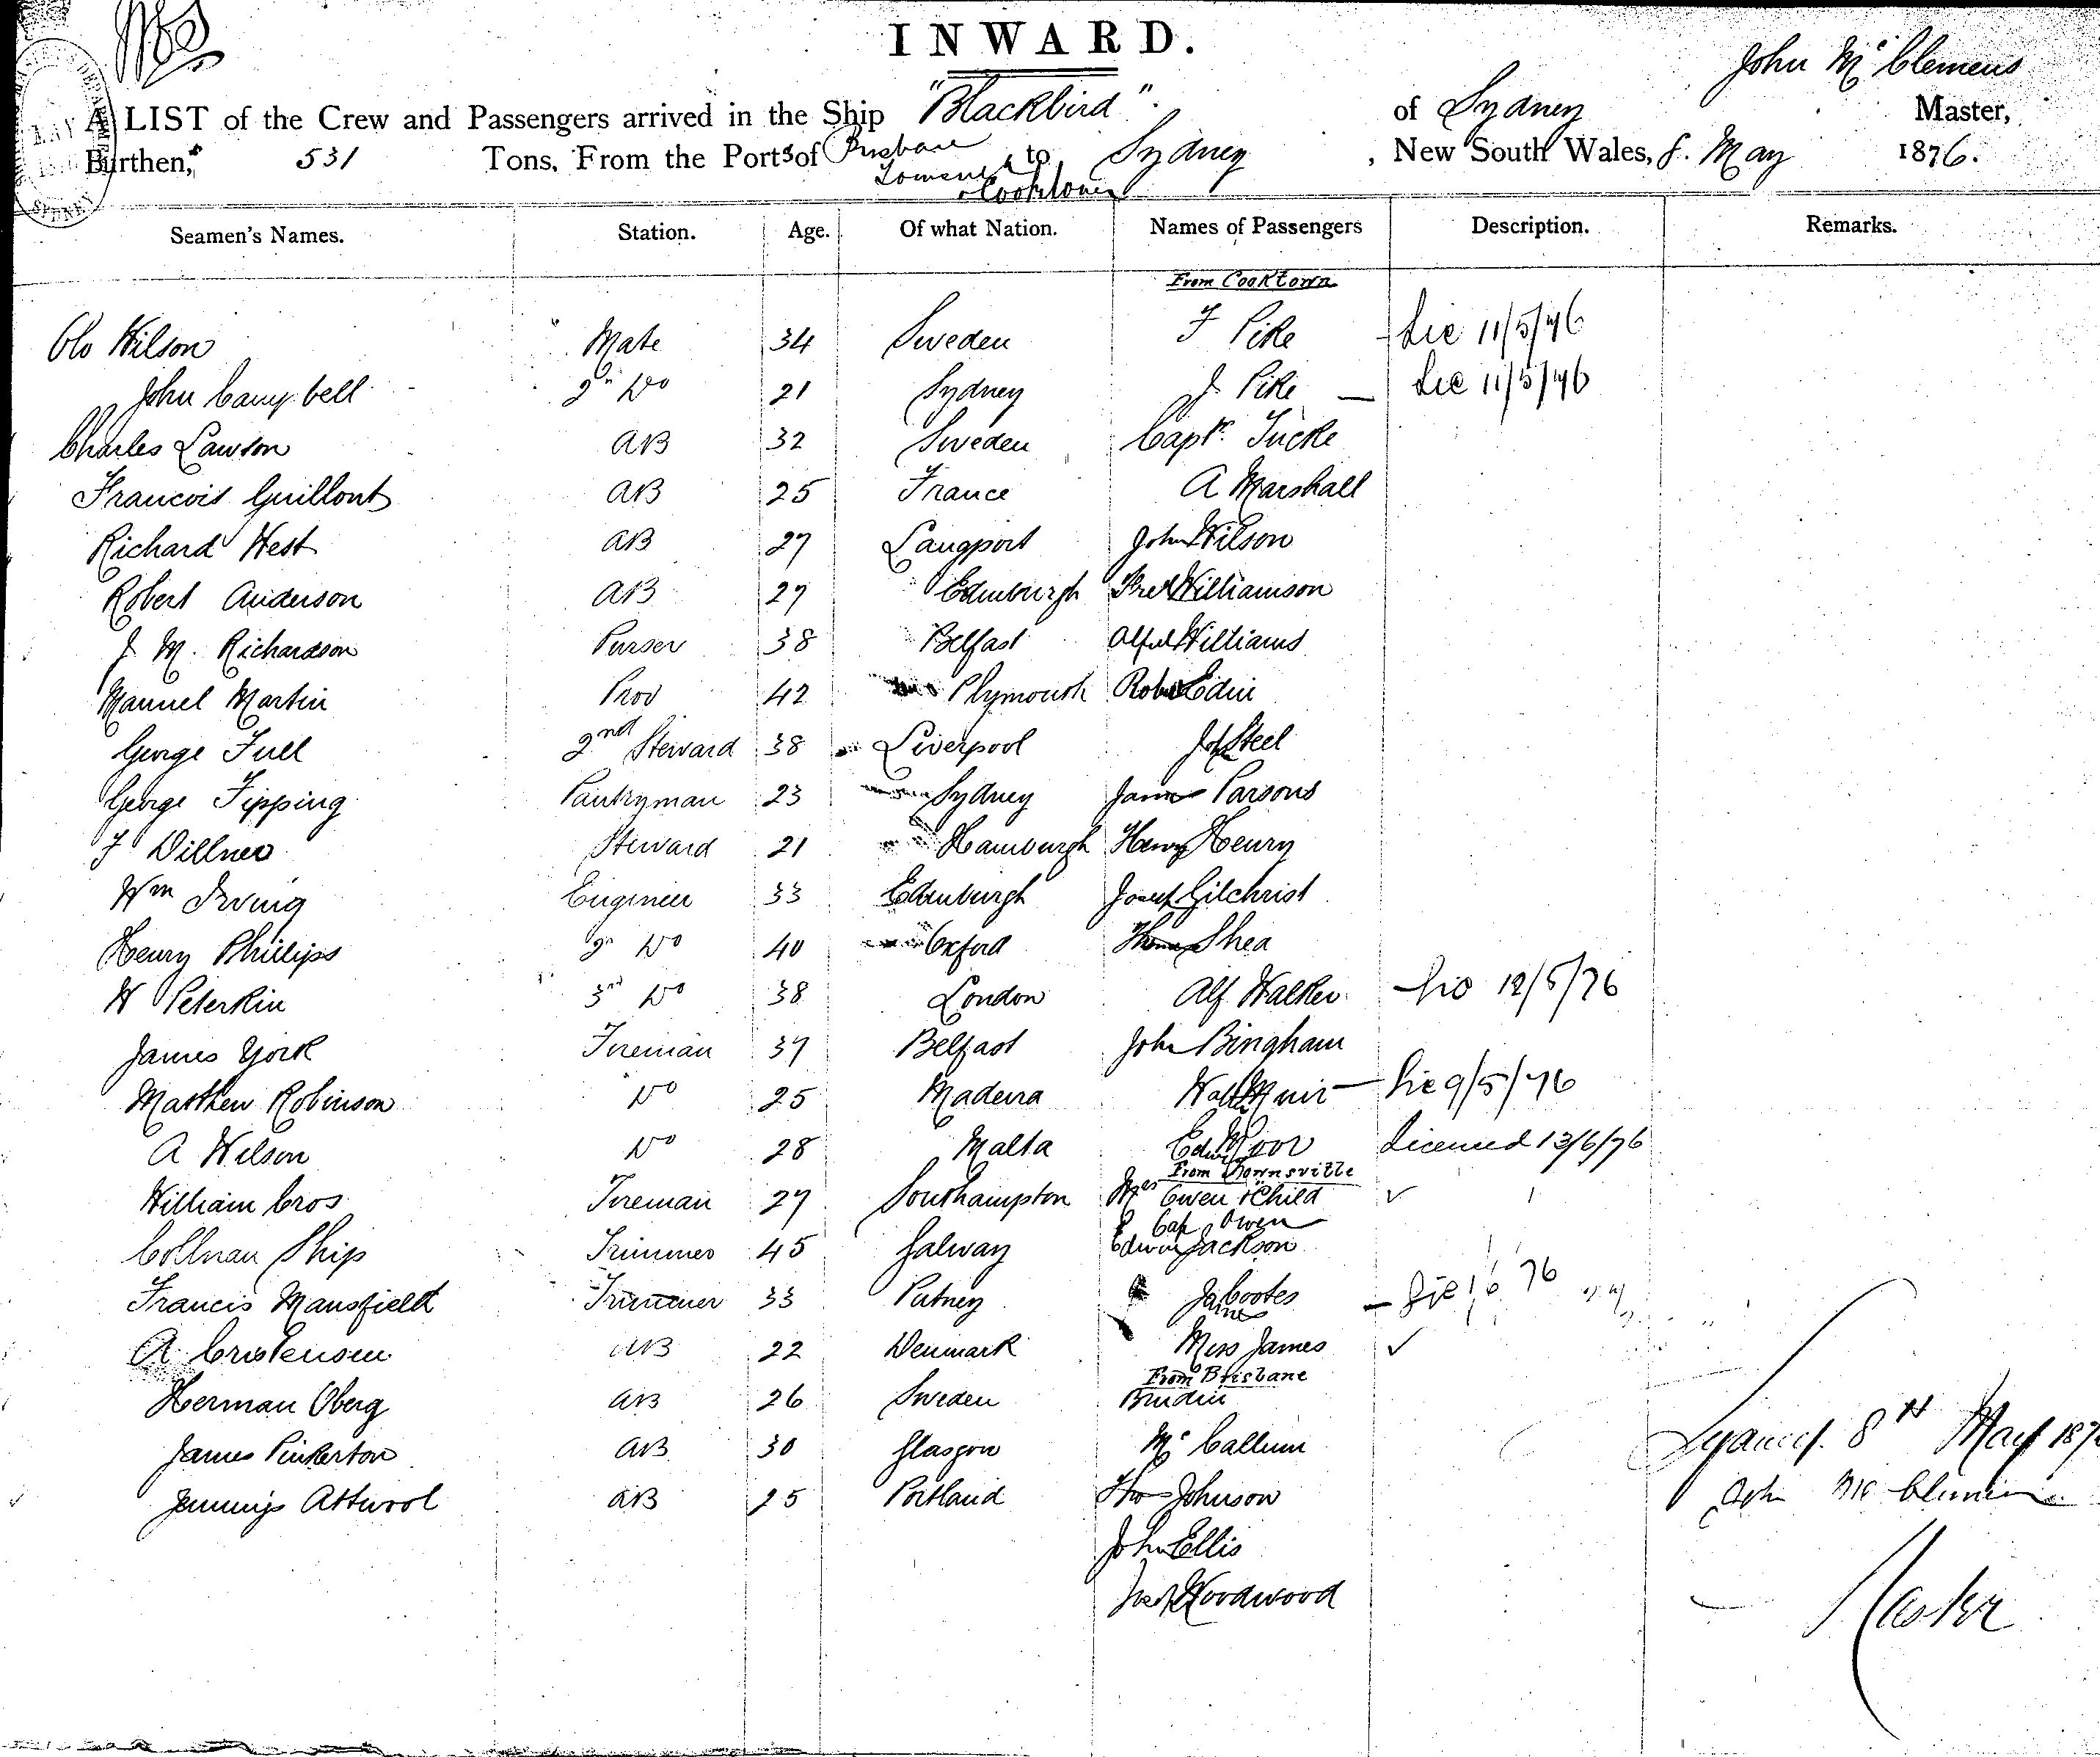 INWARD.
John Mc Clemens
A LIST of the Crew and Passengers arrived in the Ship "Blackbird". of Sydney Master,
Burthen, 531 Tons, From the Ports of Brisbane to Sydney, New South Wales, 8. May 1876.
Cooktown
Seamen's Names. Station. Age. Of what Nation. Names of Passengers Description. Remarks.
From Cooktown
Olo Wilson Mate 34 Sweden F Pike Lic 11/5/76
John Campbell 2n Do 21 Sydney J. Pike Lic 11/5/76
Charles Lawson AB 32 Sweden Capt. Tucke
Francois Guillout AB 25 France A Marshall
Richard West AB 27 Langport John Wilson
Robert Anderson AB 27 Edinburgh Fred Williamson
J. M. Richardson Purser 38 Belfast Alfred Williams
Manuel Martin Prov 42 Plymouth Robert Edin
George Full 2nd Steward 38 Liverpool Jos Steel
George Tipping Pantryman 23 Sydney James Parsons
F Dillner Steward 21 Hamburgh Henry Henry
Wm Irving Engineer 33 Edinburgh Joseph Gilchrist
Henry Phillips 2n Do 40 Oxford Thomas Shea
W Peterkin 3rd Do 38 London Alf. Walker Lic 12/5/76
James York Fireman 37 Belfast John Bingham
Matthew Robinson Do 25 Madeira Walter Muir Lic 9/5/76
A Wilson Do 28 Malta Edwin Moor Licensed 13/6/76
From Townsville
William Cros Fireman 27 Southampton Mrs Owen & Child
& Cap Owen
Collman Ship Trimmer 45 Galway Edwin Jackson
Francis Mansfield Trimmer 33 Putney James Cootes 76
A. Cristensen AB 22 Denmark Miss James
From Brisbane
Herman Oberg AB 26 Sweden Brudin
James Pinkerton AB 30 Glasgow Mc Callum
Jennings Attwool AB 25 Portland Tho Johnson
John Ellis
Woodwood
Sydney. 8th May 187
John Mc Clemens
Master